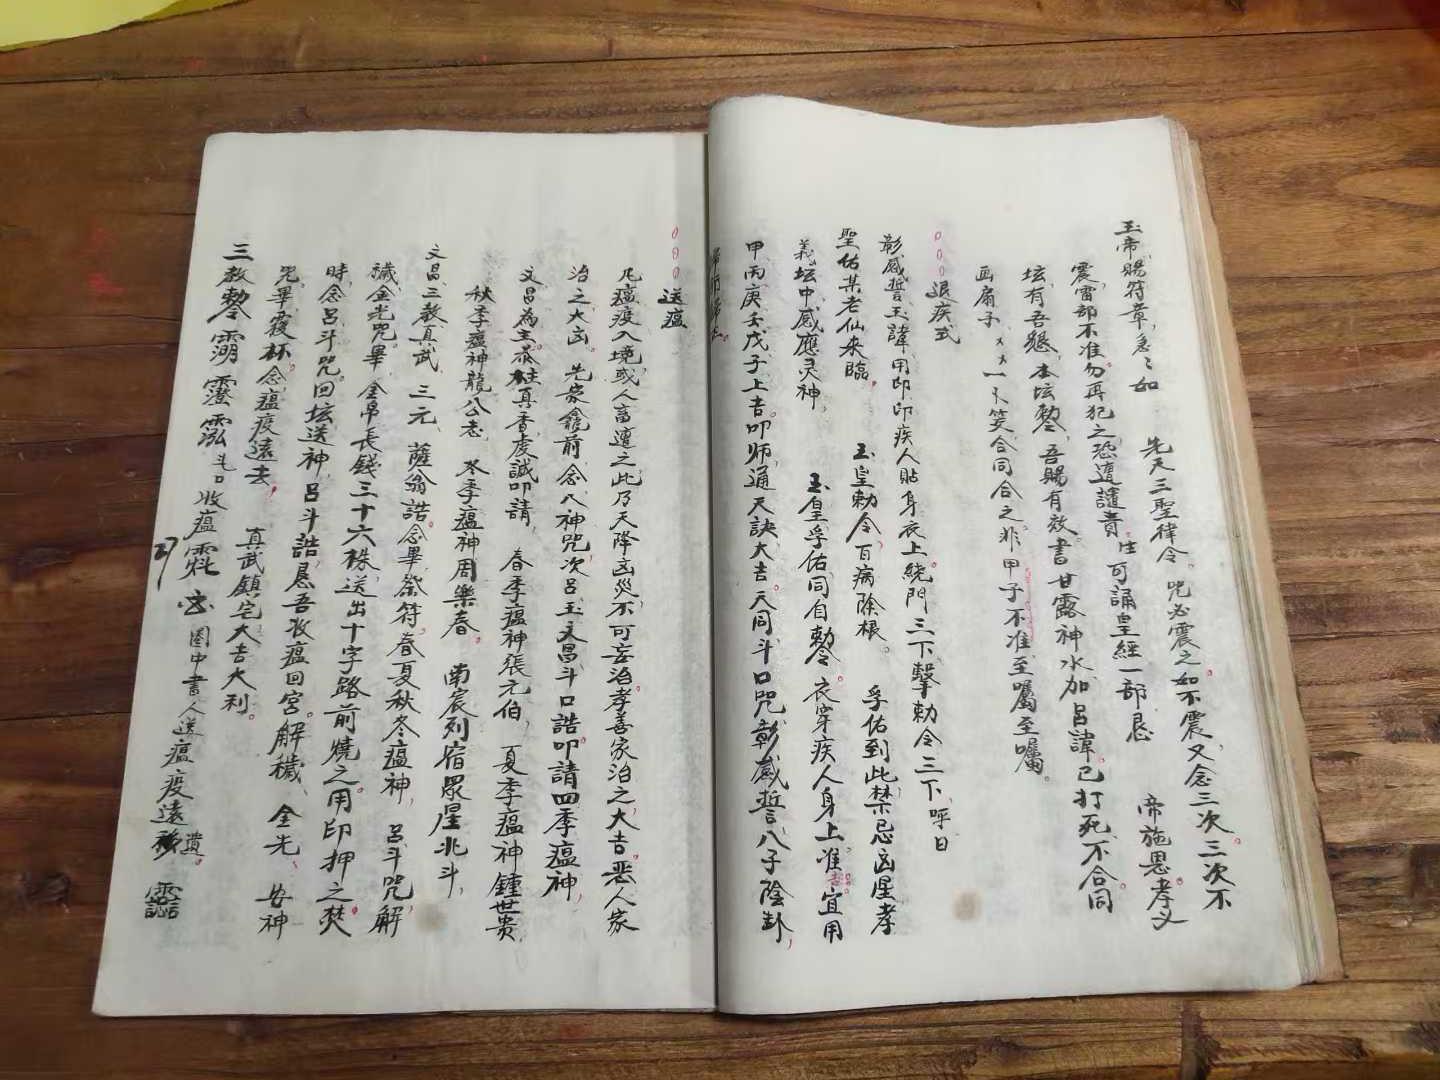 玉帝賜符章,急〻如　先天三聖律令。咒必震之。如不震,又念三次。三次不
震,雷部不准勿再犯之,恐遭譴責。生可誦皇經一部,恳　帝施恩。孝义
坛,有吾懸,本坛勅,吾賜有效。書甘露神水加呂諱。已打死不合同
画扇子,〤〤一卜筊合同合之。非甲子不准至囑至囑。
○○○退疾式
彰感誓玉諱,用印印疾人貼身衣上。繞門三下擊勅令三下,呼曰
聖佑某老仙来臨。　玉皇勅令,百病除根。　孚佑到此,禁忌凶星孝
義坛中,感應灵神,　玉皇孚佑同自勅令。衣穿疾人身上。准吉。宜用
甲丙庚壬戊子上吉。叩师通天訣大吉。天同斗口咒彰感誓八子陰卦,
○○○送瘟
凡瘟疫入境,或人畜遭之,此乃天降凶災,不可妄治。孝善家治之大吉。恶人家
治之大凶。先家龕前念八神咒,次呂玉文昌斗口誥。叩請四季瘟神,
文昌為主,恭炷真香虔誠叩請,　春季瘟神張元伯,　夏季瘟神鍾世贵
秋季瘟神龍公志　冬季瘟神周樂春。　南宸列宿眾星兆斗,
文昌,三教真武,三元　薩翁誥。念畢,祭符。春夏秋冬瘟神,　呂斗咒,解
穢金光咒畢,金帛長錢三十六株,送出十字路前燒之。用印押之。焚
時,念呂斗咒。回坛送神,呂斗誥,恳吾收瘟回宮。解穢、金光、安神
咒畢,覆杯。念瘟疫遠去,　真武鎮宅大吉大利。
三教勅　斗口收瘟　圈中書人送瘟疫遠移遺。